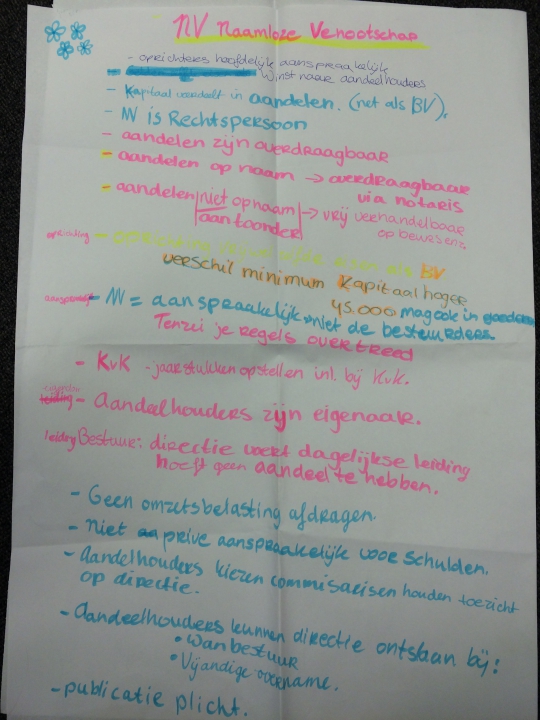 NV Naamloze Venootschap
- oprichters hoofdelijk aansprakelijk
Winst naar aandeelhouders
- Kapitaal verdeelt in aandelen. (net als BV).
- NV is Rechtspersoon
- aandelen zijn overdraagbaar
- aandelen op naam → overdraagbaar
via notaris
- aandelen niet op naam → vrij verhandelbaar
aan toonder op beurs
oprichting - oprichting als BV
verschil minimum Kapitaal hoger
45.000 mag ook in goederen
- NV = aanspraakelijk, niet de bestuurders
Tenzij je regels overtreed
- KvK - jaarstukken opstellen inl. bij KvK.
leiding - Aandeelhouders zijn eigenaar.
leiding Bestuur: directie voert dagelijkse leiding
hoeft geen aandeel te hebben.
- Geen omzetsbelasting afdragen.
- Niet prive aanspraakelijk voor schulden.
- Aandelhouders kiezen commisarisen houden toezicht
op directie.
- Aandeelhouders kunnen directie ontslaan bij:
• Wanbestuur
• Vijandige overname.
- publicatie plicht.